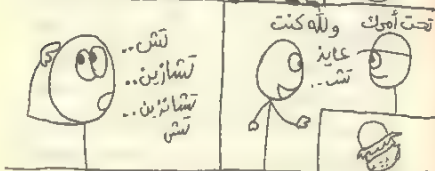 تحت أمرك
والله كنت
عايز
تش..
تش..
تشازين..
تشانزين..
تش